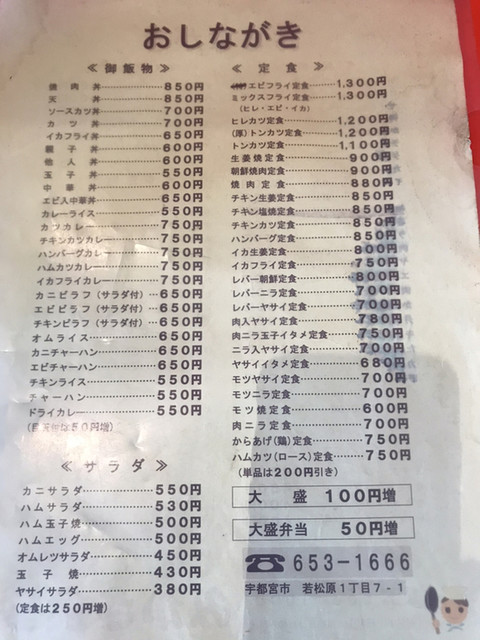 おしながき
≪御飯物≫
焼肉丼 850円
天丼 850円
ソースカツ丼 700円
カツ丼 700円
イカフライ丼 650円
親子丼 600円
他人丼 600円
玉子丼 550円
中華丼 600円
エビ入中華丼 650円
カレーライス 550円
カツカレー 750円
チキンカツカレー 750円
ハンバーグカレー 750円
ハムカツカレー 750円
イカフライカレー 750円
カニピラフ（サラダ付） 650円
エビピラフ（サラダ付） 650円
チキンピラフ（サラダ付） 650円
オムライス 650円
カニチャーハン 650円
エビチャーハン 650円
チキンライス 550円
チャーハン 550円
ドライカレー 550円
は50円増)
≪サラダ≫
カニサラダ 550円
ハムサラダ 530円
ハム玉子焼 500円
ハムエッグ 500円
オムレツサラダ 450円
玉子焼 430円
ヤサイサラダ 380円
(定食は250円増)
≪定食≫
エビフライ定食 1,300円
ミックスフライ定食 1,300円
(ヒレ・エビ・イカ)
ヒレカツ定食 1,200円
(厚)トンカツ定食 1,200円
トンカツ定食 1,100円
生姜焼定食 900円
朝鮮焼肉定食 900円
焼肉定食 880円
チキン生姜定食 850円
チキン塩焼定食 850円
チキンカツ定食 850円
ハンバーグ定食 850円
イカ生姜定食 800円
イカフライ定食 750円
レバー朝鮮定食 800円
レバーニラ定食 700円
レバーヤサイ定食 700円
肉入ヤサイ定食 780円
肉ニラ玉子イタメ定食 750円
ニラ入ヤサイ定食 700円
ヤサイイタメ定食 680円
モツヤサイ定食 700円
モツニラ定食 700円
モツ焼定食 600円
肉ニラ定食 700円
からあげ(鶏)定食 750円
ハムカツ(ロース)定食 750円
(単品は200円引き)
大盛 100円増
大盛弁当 50円増
☎653-1666
宇都宮市 若松原1丁目7-1